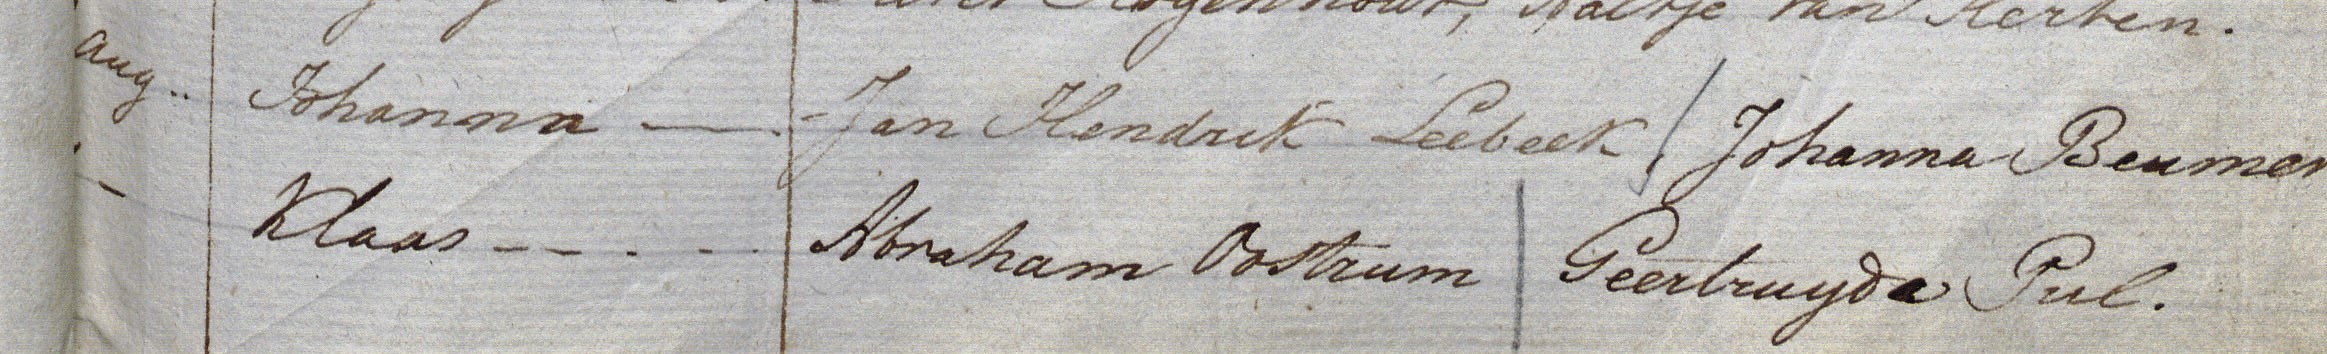 van Kerben.
Aug.. Johanna — Jan Hendrik Leebeek / Johanna Beumer
— Klaas — — . - - Abraham Oostrum | Geertruyda Pul.